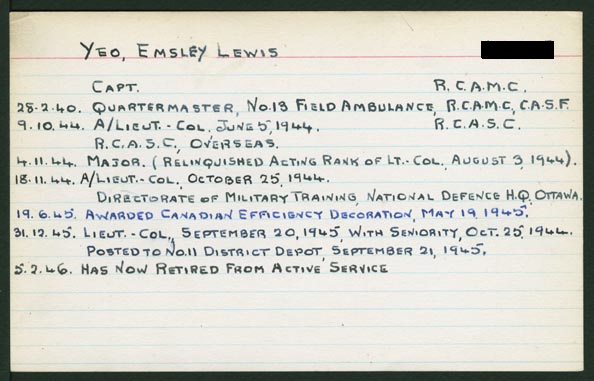 YEO, EMSLEY LEWIS
CAPT. R.C.A.M.C.
28.2.40. QUARTERMASTER, NO.18 FIELD AMBULANCE, R.C.A.M.C, C.A.S.F.
9.10.44. A/LIEUT.-COL, JUNE 5, 1944. R.C.A.S.C.
R.C.A.S.C, OVERSEAS.
4.11.44. MAJOR. (RELINQUISHED ACTING RANK OF LT.-COL, AUGUST 3, 1944).
18.11.44. A/LIEUT-COL, OCTOBER 25, 1944.
DIRECTORATE OF MILITARY TRAINING, NATIONAL DEFENCE H.Q, OTTAWA.
19.6.45. AWARDED CANADIAN EFFICIENCY DECORATION, MAY 19, 1945.
31.12.45. LIEUT.-COL, SEPTEMBER 20, 1945, WITH SENIORITY, OCT. 25, 1944.
POSTED TO NO.11 DISTRICT DEPOT, SEPTEMBER 21, 1945.
5.2.46. HAS NOW RETIRED FROM ACTIVE SERVICE